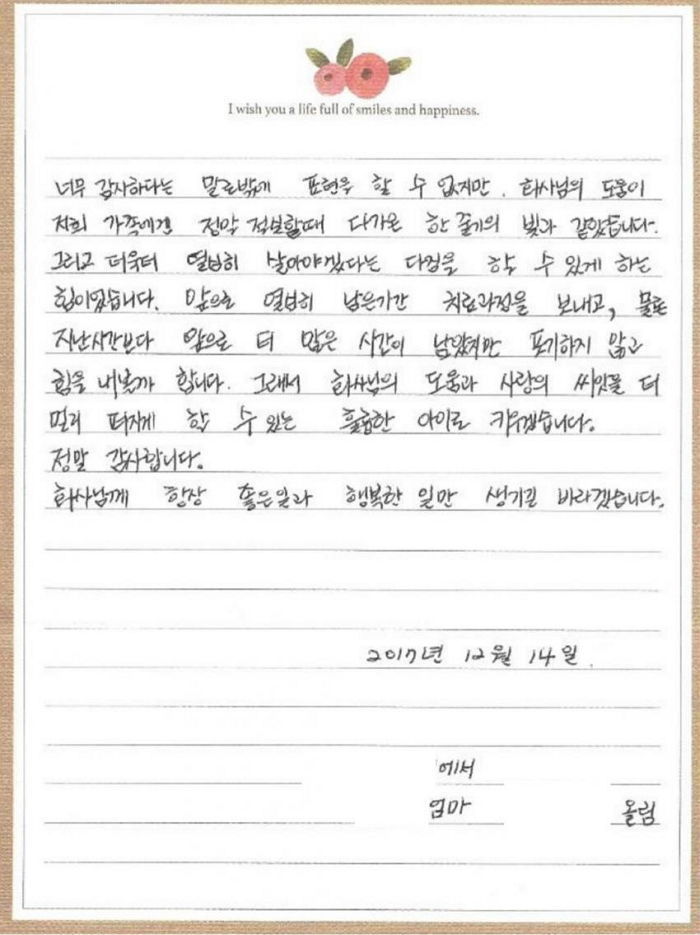 I wish you a life full of smiles and happiness.
너무 감사하다는 말로밖에 표현을 할 수 없지만. 회사님의 도움이
저희 가족에겐 절망 절보할때 다가온 한 줄기의 빛과 같았습니다.
그리고 더욱더 열심히 살아야겠다는 다짐을 할 수 있게 하는
힘이었습니다. 앞으로 열심히 남은기간 치료과정을 보내고, 물론
지난시간보다 앞으로 더 많은 시간이 남았지만 포기하지 않고
힘을 내볼까 합니다. 그래서 회사님의 도움과 사랑의 씨앗을 더
멀리 퍼지게 할 수 있는 훌륭한 아이로 키우겠습니다.
정말 감사합니다.
회사님께 항상 좋은일과 행복한 일만 생기길 바라겠습니다.
2017년 12월 14일.
에서
엄마 올림